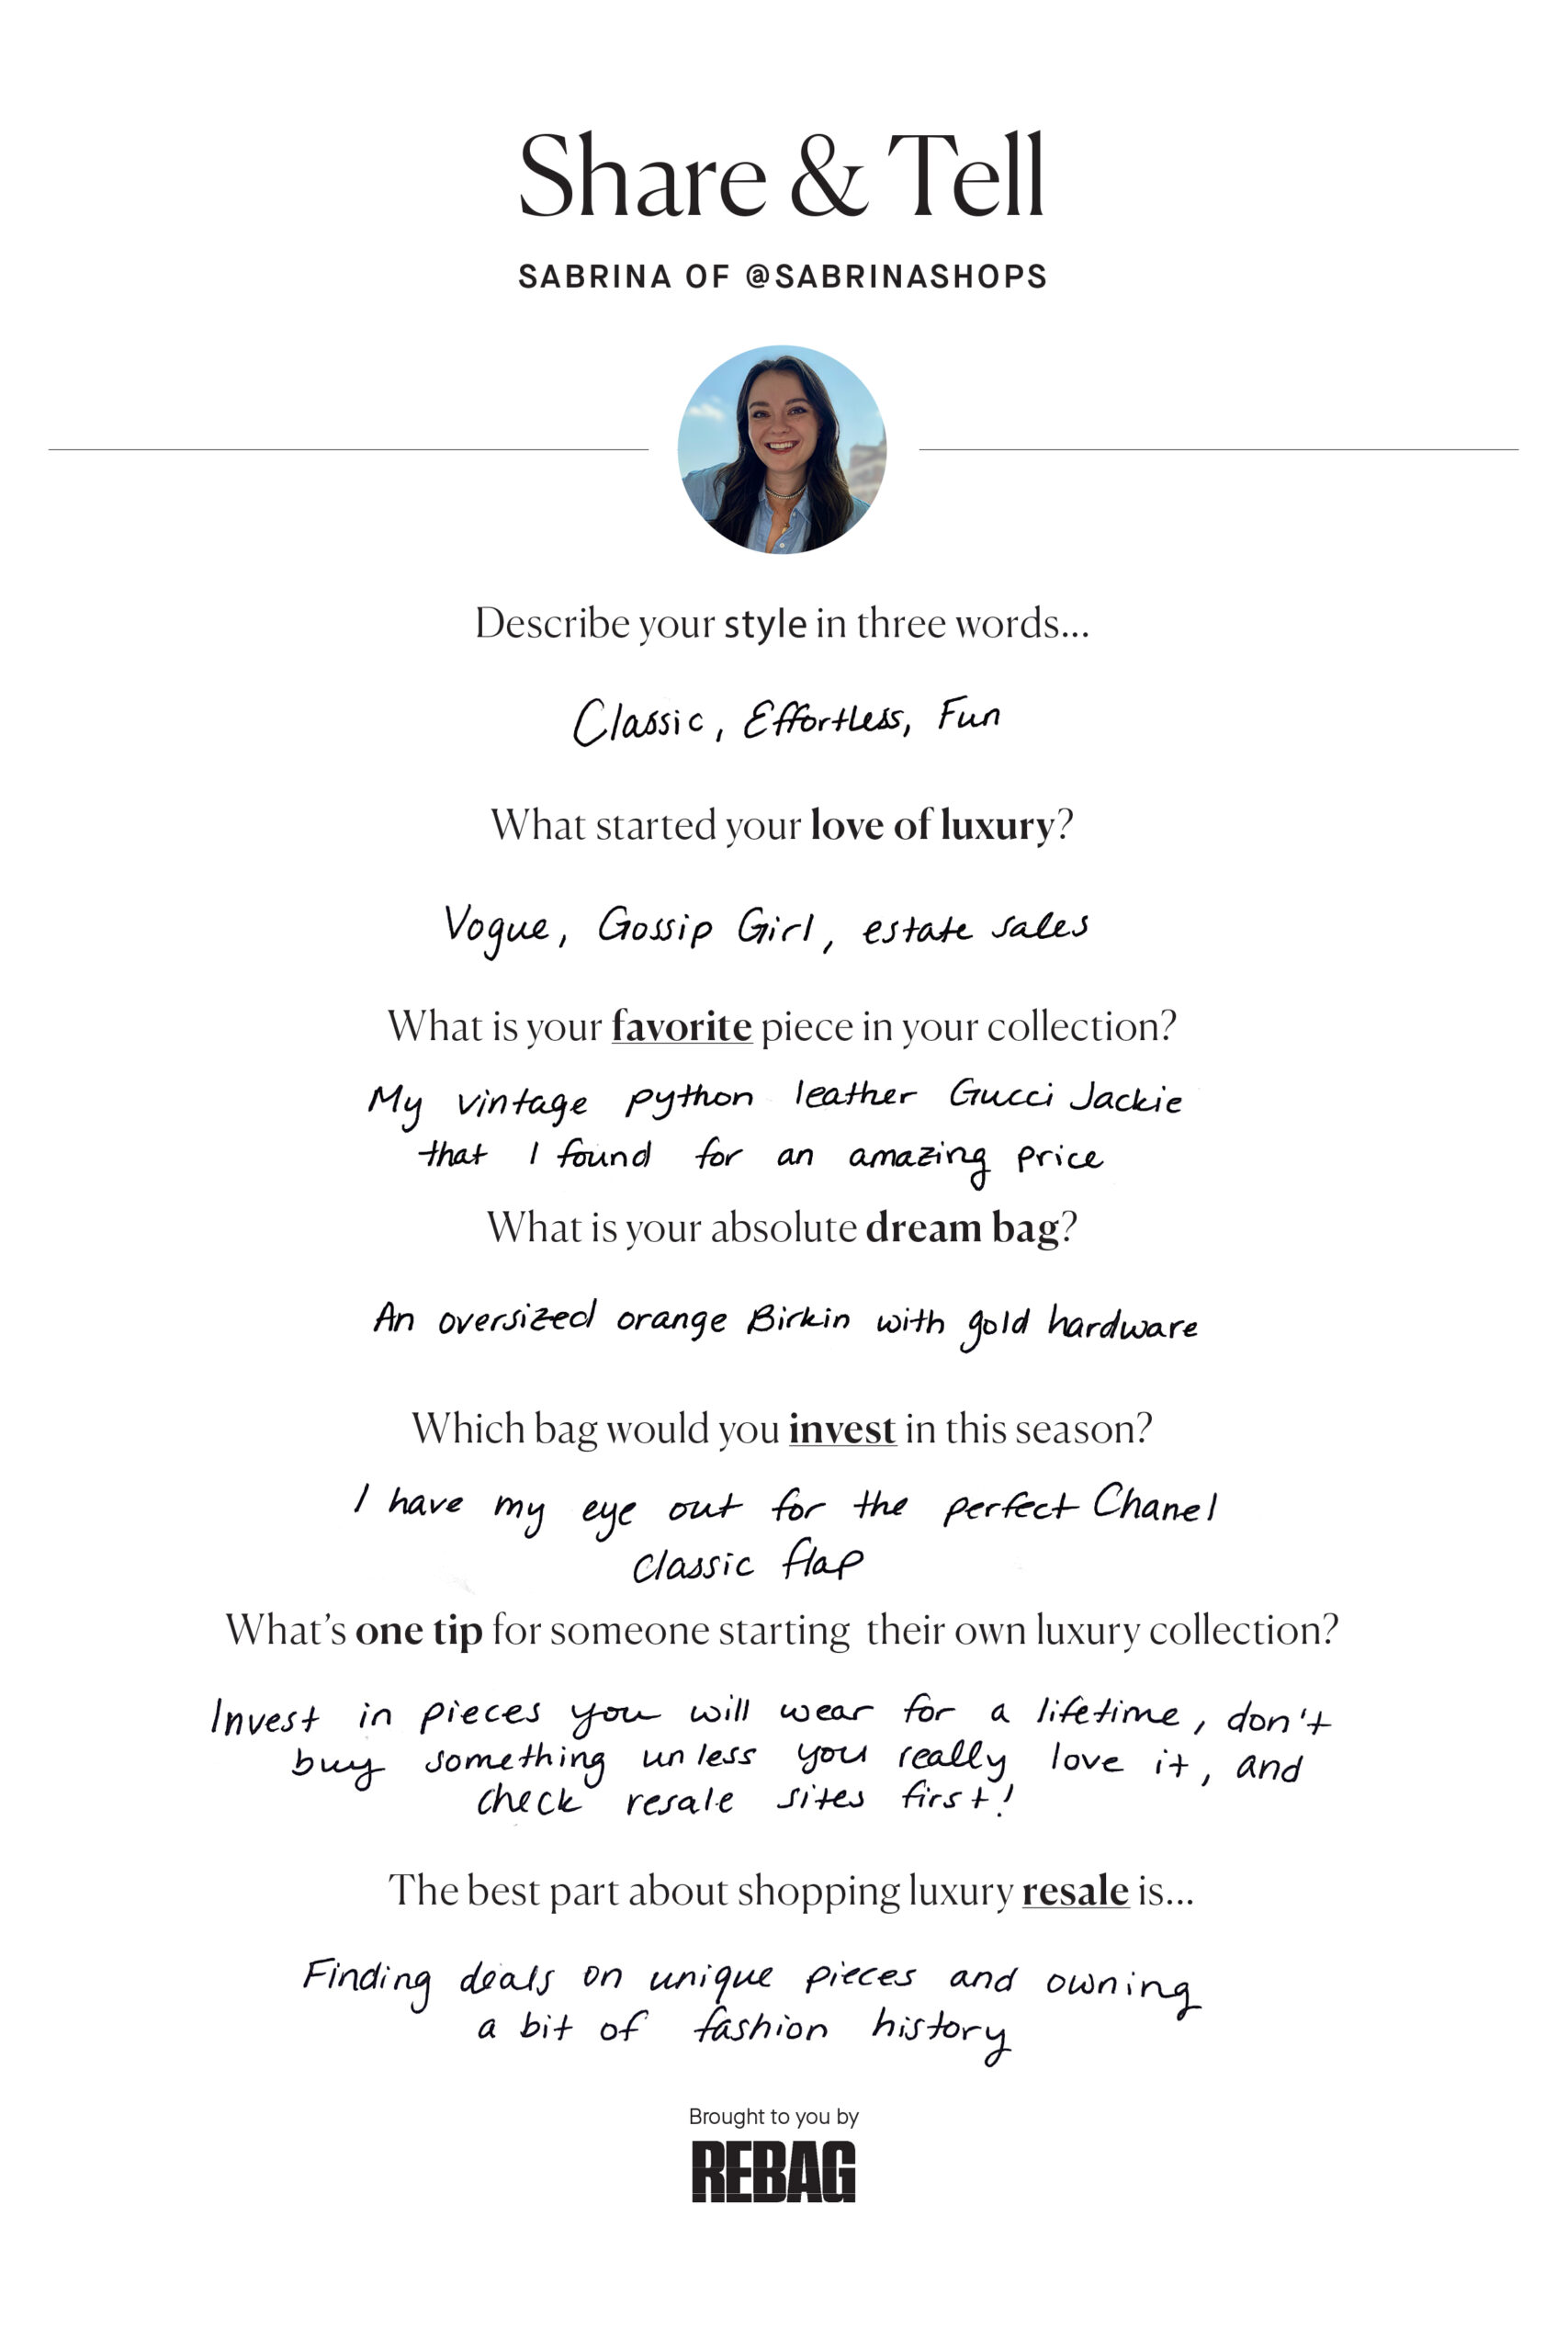 Share & Tell
SABRINA OF @SABRINASHOPS
Describe your style in three words...
Classic, Effortless, Fun
What started your love of luxury?
Vogue, Gossip Girl, estate sales
What is your favorite piece in your collection?
My vintage python leather Gucci Jackie
that I found for an amazing price
What is your absolute dream bag?
An oversized orange Birkin with gold hardware
Which bag would you invest in this season?
I have my eye out for the perfect Chanel
classic flap
What's one tip for someone starting their own luxury collection?
Invest in pieces you will wear for a lifetime, don't
buy something unless you really love it, and
check resale sites first!
The best part about shopping luxury resale is...
Finding deals on unique pieces and owning
a bit of fashion history
Brought to you by
REBAG